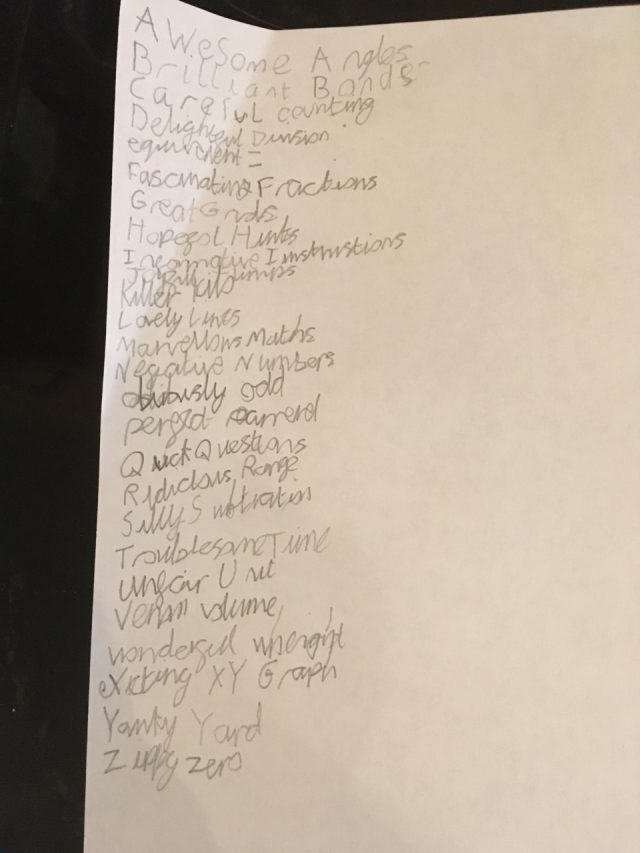 AWesome Angles
Brilliant Bonds
Careful counting
Delightful Division
equivelent =
Fascinating Fractions
Great Grids
Hopefol Hints
Informative Instrustions
Joyful Jumps
Killer Kilo
Lovely Lines
Marvellous Maths
Negative Numbers
obibusly odd
perfect
Quick Questions
Ridiclous Range
Silly
Troublesome Time
Unfair Unit
volume
wonderful wheight
eXicting XY Graph
Yanky Yard
Zippy zero